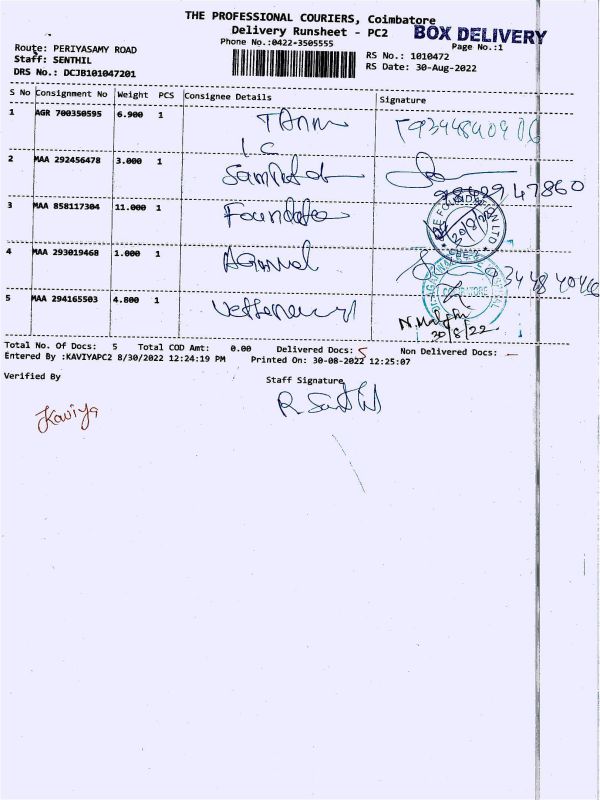 THE PROFESSIONAL COURIERS, Coimbatore
Delivery Runsheet - PC2
BOX DELIVERY
Phone No.:0422-3505555
Page No.:1
Route: PERIYASAMY ROAD
Staff: SENTHIL
DRS No.: DCJB101047201
RS No.: 1010472
RS Date: 30-Aug-2022
S No Consignment No Weight PCS Consignee Details Signature
1 AGR 700350595 6.900 1
2 MAA 292456478 3.000 1
9842947860
3 MAA 858117304 11.000 1 Foundation
4 MAA 293019468 1.000 1 Agarwal
COIMBATORE
5 MAA 294165503 4.800 1
30/8/22
Total No. Of Docs: 5 Total COD Amt: 0.00 Delivered Docs: 5 Non Delivered Docs: —
Entered By :KAVIYAPC2 8/30/2022 12:24:19 PM Printed On: 30-08-2022 12:25:07
Verified By
Staff Signature
Kaviya